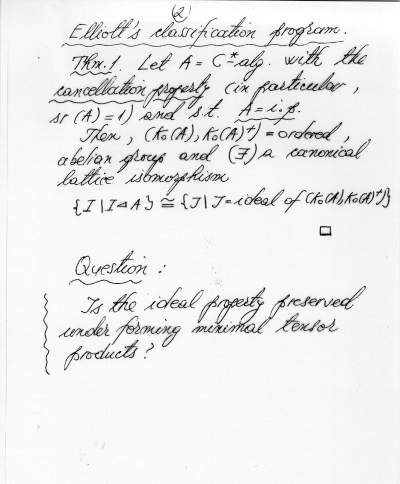 (2)
Elliott's classification program.
Thm.1. Let A = C*-alg. with the
cancellation property (in particular,
sr(A)=1) and s.t. A = i.p.
Then, (K₀(A), K₀(A)⁺) = ordered,
abelian group and (∃) a canonical
lattice isomorphism
{I | I ⊲ A} ≅ {J | J = ideal of (K₀(A), K₀(A)⁺)}
□
Question :
Is the ideal property preserved
under forming minimal tensor
products?